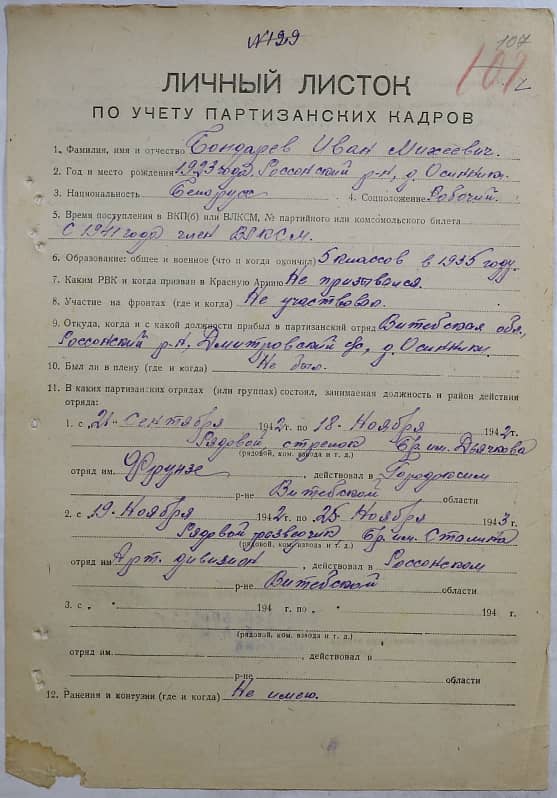 №129
107
107
ЛИЧНЫЙ ЛИСТОК
ПО УЧЕТУ ПАРТИЗАНСКИХ КАДРОВ
1. Фамилия, имя и отчество Бондарев Иван Михеевич.
2. Год и место рождения 1923 года, Россонский р-н, д. Осинники.
3. Национальность Белорусс 4. Соцположение Рабочий.
5. Время поступления в ВКП(б) или ВЛКСМ, № партийного или комсомольского билета
С 1941 года член ВЛКСМ.
6. Образование: общее и военное (что и когда окончил) 5 классов в 1935 году.
7. Каким РВК и когда призван в Красную Армию Не призывался.
8. Участие на фронтах (где и когда) Не участвовал.
9. Откуда, когда и с какой должности прибыл в партизанский отряд Витебская обл.,
Россонский р-н, Дмитровский с/с, д. Осинники.
10. Был ли в плену (где и когда) Не был.
11. В каких партизанских отрядах (или группах) состоял, занимаемая должность и район действия
отряда:
1. с „21“ Сентября 1942 г. по 18 Ноября 1942 г.
Рядовой стрелок Бр. им. Дьячкова
(рядовой, ком. взвода и т. д.)
отряд им. Фрунзе, действовал в Городокским
р-не Витебской области
2. с 19 Ноября 1942 г. по 25 Ноября 1943 г.
Рядовой разведчик, Бр. им. Сталина
(рядовой, ком. взвода и т. д.)
отряд им Арт. дивизион, действовал в Россонском
р-не Витебской области
3. с „ “ 194 г. по „ “ 194 г.
(рядовой, ком. взвода и т. д.)
отряд им. , действовал в
р-не области
12. Ранения и контузии (где и когда) Не имею.